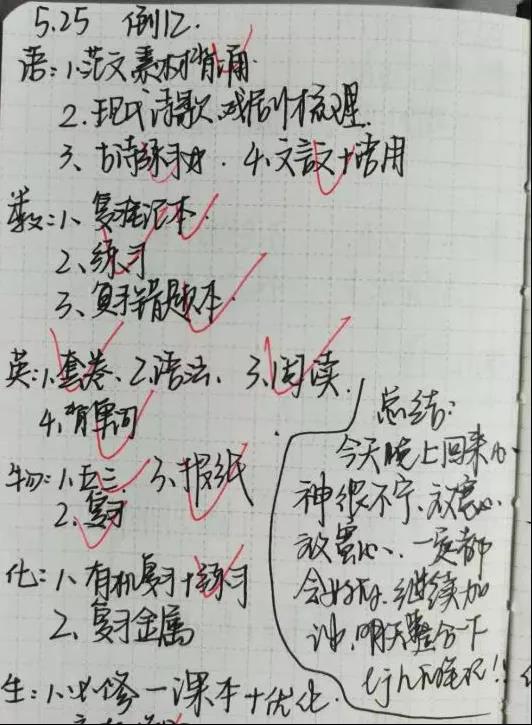 5.25
语:1.范文素材背诵.
2.现代诗歌、戏剧梳理.
3、古诗练习. 4.文言文+语用
数:1、复在记本.
2.练习
3、复习错题本.
英:1.套卷、2.语法、3.阅读.
4.背单词
物:1.五三、3、报纸
2、复习
化:1、有机复习+练习
2、复习金属
生:1.必修一课本+优化.
总结:
今天晚上回来心
神很不宁、放宽心
放宽心、一定都
会好的.继续加
油,明天整合一下